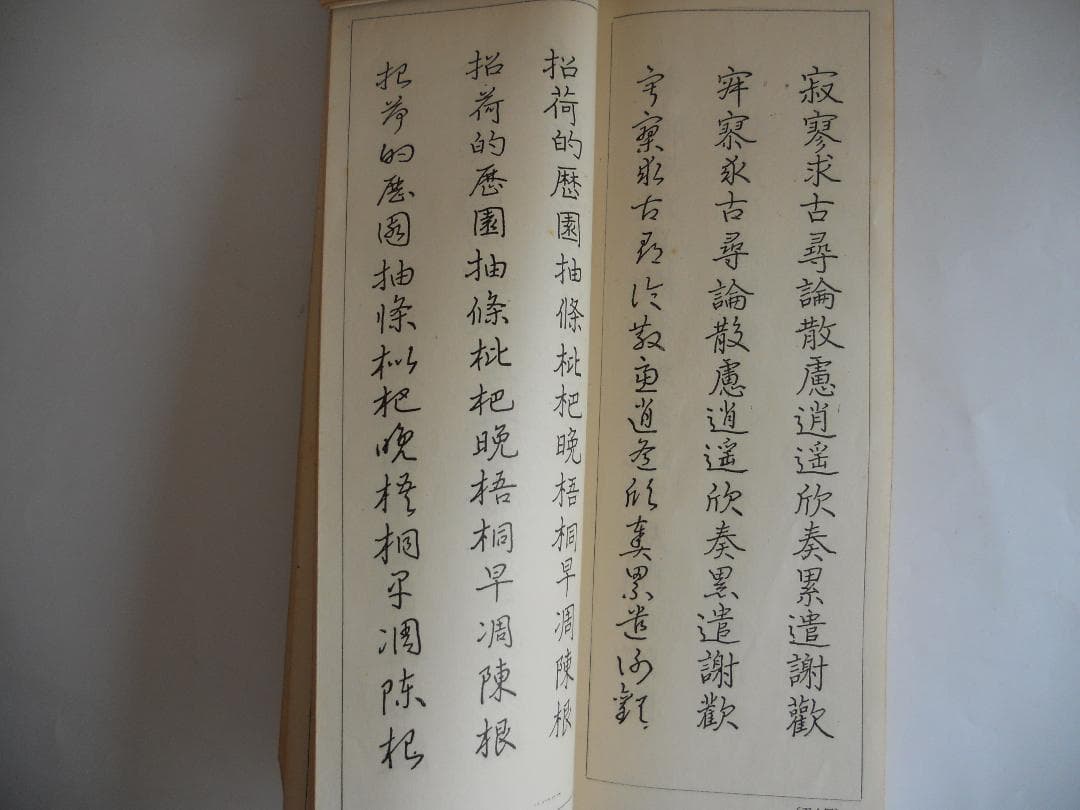 寂寥求古尋論散慮逍遥欣奏累遣謝歡
寂寥求古尋論散慮逍遥欣奏累遣謝歡
寂寥求古尋論散慮逍遥欣奏累遣謝歡
招荷的歷園抽條枇杷晚梧桐早凋陳根
招荷的歷園抽條枇杷晚梧桐早凋陳根
招荷的歷園抽條枇杷晚梧桐早凋陳根